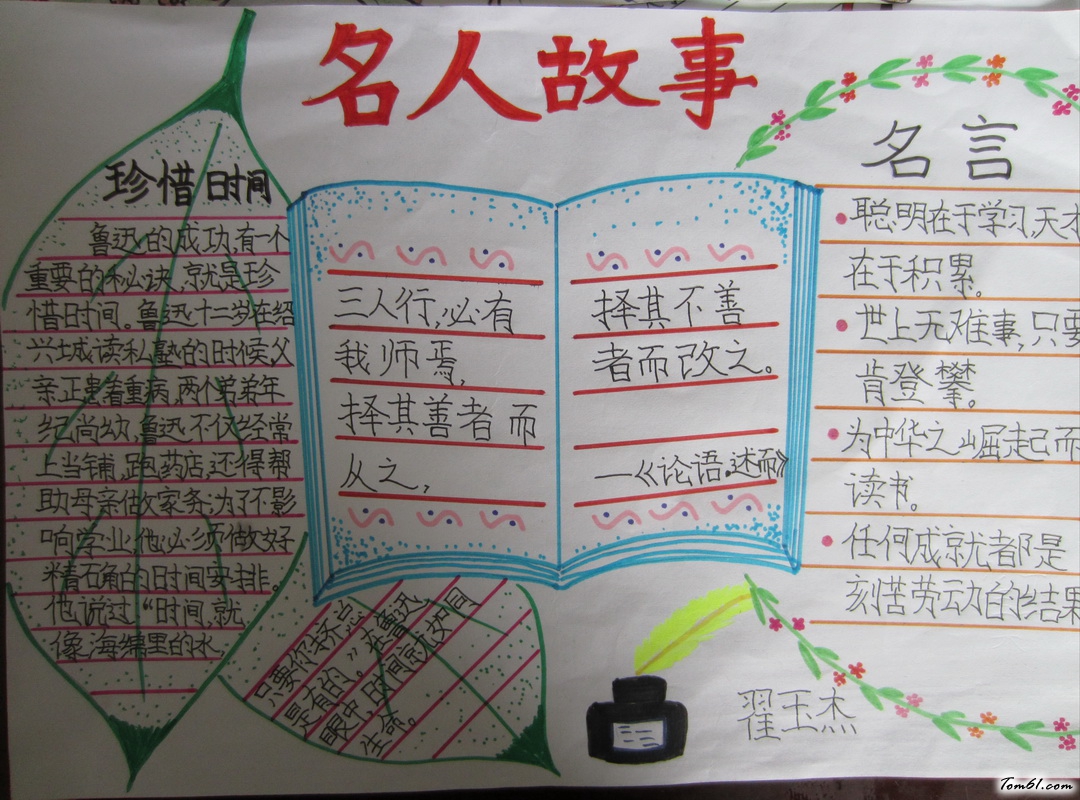 名人故事
珍惜时间
鲁迅的成功,有一个
重要的秘诀,就是珍
惜时间。鲁迅十二岁在绍
兴城读私塾的时候父
亲正患着重病,两个弟弟年
纪尚幼,鲁迅不仅经常
上当铺,跑药店,还得帮
助母亲做家务;为了不影
响学业,他必须做好
精确的时间安排。
他说过“时间,就
像海绵里的水,
只要你挤,总
是有的。”在鲁迅
眼中,时间就如同
生命。
三人行,必有
我师焉,
择其善者而
从之,
择其不善
者而改之。
—《论语·述而》
名言
聪明在于学习,天才
在于积累。
世上无难事,只要
肯登攀。
为中华之崛起而
读书。
任何成就都是
刻苦劳动的结果
翟玉杰
Tom61.com